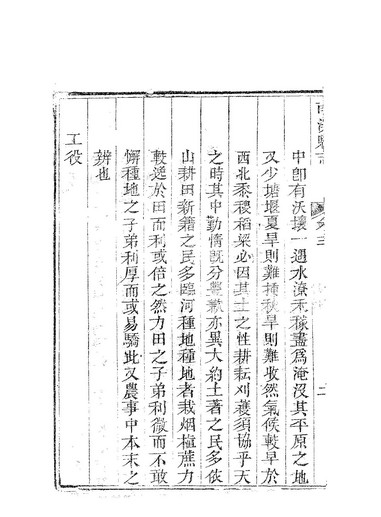 中卽有沃壤一遇水潦禾稼盡爲淹沒其平原之地
又少塘堰夏旱則難揷秋旱則難收然氣候較早於
西北黍稷稻粱必因其土之性耕耘刈穫須協乎天
之時其中勤惰旣分豐歉亦異大約土著之民多依
山耕田新籍之民多臨河種地種地者栽烟植蔗力
較逆於田而利或倍之然力田之子弟利微而不敢
懈種地之子弟利厚而或易驕此又農事中本末之
辨也
工役